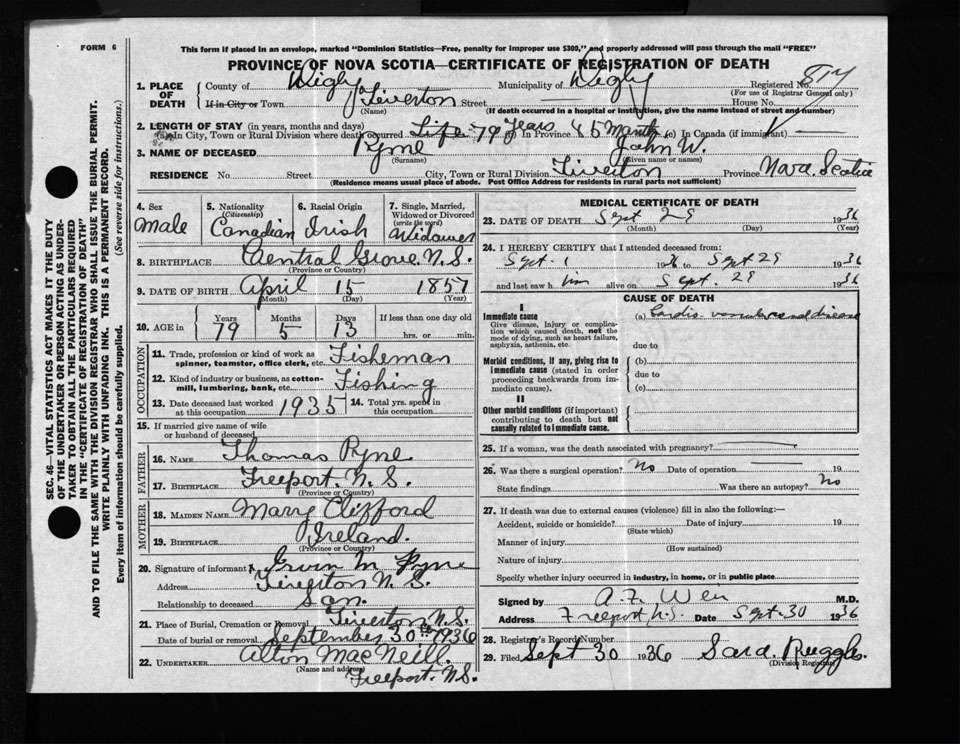 FORM 6
This form if placed in an envelope, marked "Dominion Statistics—Free, penalty for improper use $300," and properly addressed will pass through the mail "FREE"
PROVINCE OF NOVA SCOTIA—CERTIFICATE OF REGISTRATION OF DEATH
1. PLACE OF DEATH County of Digby Municipality of Digby Registered No. 817
(For use of Registrar General only)
If in City or Town Tiverton Street House No.
(Name) (If death occurred in a hospital or institution, give the name instead of street and number)
2. LENGTH OF STAY (in years, months and days)
(a) In City, Town or Rural Division where death occurred Life 79 years In Province & 5 Months (c) In Canada (if immigrant)
3. NAME OF DECEASED Pyne John W.
(Surname) (Given name or names)
RESIDENCE No. Street City, Town or Rural Division Tiverton Province Nova Scotia
(Residence means usual place of abode. Post Office Address for residents in rural parts not sufficient)
SEC. 46—VITAL STATISTICS ACT MAKES IT THE DUTY
OF THE UNDERTAKER OR PERSON ACTING AS UNDER-
TAKER TO OBTAIN ALL THE PARTICULARS REQUIRED
IN THE "CERTIFICATE OF REGISTRATION OF DEATH"
AND TO FILE THE SAME WITH THE DIVISION REGISTRAR WHO SHALL ISSUE THE BURIAL PERMIT.
WRITE PLAINLY WITH UNFADING INK. THIS IS A PERMANENT RECORD.
Every item of information should be carefully supplied. (See reverse side for instructions.)
4. Sex 5. Nationality 6. Racial Origin 7. Single, Married,
(Citizenship) Widowed or Divorced
(write the word)
Male Canadian Irish Widower
8. BIRTHPLACE Central Grove N.S.
(Province or Country)
9. DATE OF BIRTH April 15 1857
(Month) (Day) (Year)
10. AGE in Years Months Days If less than one day old
79 5 13 hrs. or min.
OCCUPATION
11. Trade, profession or kind of work as
spinner, teamster, office clerk, etc. Fisheman
12. Kind of industry or business, as cotton-
mill, lumbering, bank, etc. Fishing
13. Date deceased last worked
at this occupation 1935 14. Total yrs. spent in
this occupation
15. If married give name of wife
or husband of deceased
FATHER
16. NAME Thomas Pyne
17. BIRTHPLACE Freeport. N. S.
(Province or Country)
MOTHER
18. MAIDEN NAME Mary Clifford
19. BIRTHPLACE Ireland.
(Province or Country)
20. Signature of informant Ervin M. Pyne
Address Tiverton N. S.
Relationship to deceased son.
21. Place of Burial, Cremation or Removal Tiverton N.S.
Date of burial or removal September 30th 1936
22. UNDERTAKER Alton MacNeill.
(Name and address)
Freeport. N.S.
MEDICAL CERTIFICATE OF DEATH
23. DATE OF DEATH Sept 28 1936
(Month) (Day) (Year)
24. I HEREBY CERTIFY that I attended deceased from:
Sept. 1 1936 to Sept 29 1936
and last saw him alive on Sept. 29 1936
CAUSE OF DEATH
I
Immediate cause (a) Cardio-
Give disease, injury or complica-
tion which caused death, not the
mode of dying, such as heart failure,
asphyxia, asthenia, etc. due to
Morbid conditions, if any, giving rise to (b)
immediate cause (stated in order due to
proceeding backwards from im-
mediate cause). (c)
II
Other morbid conditions (if important)
contributing to death but not
causally related to immediate cause.
25. If a woman, was the death associated with pregnancy?
26. Was there a surgical operation? No Date of operation 19
State findings Was there an autopsy? No
27. If death was due to external causes (violence) fill in also the following:—
Accident, suicide or homicide? Date of injury 19
(State which)
Manner of injury
(How sustained)
Nature of injury
Specify whether injury occurred in industry, in home, or in public place
Signed by A. F. Weir M.D.
Address Freeport N.S. Date Sept-30 1936
28. Registrar's Record Number
29. Filed Sept 30 1936 Sara. Ruggles.
(Division Registrar)